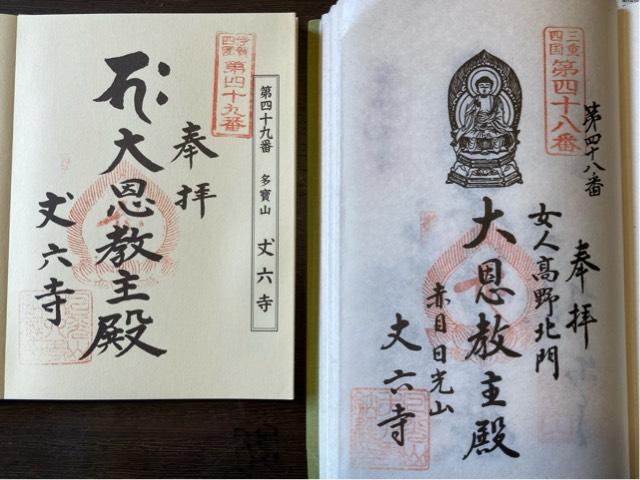 第四十九番　多寶山　丈六寺
四国
第四十九番
奉拝
大恩教主殿
丈六寺
第四十八番
三重四国
第四十八番
奉拝
女人高野北門
大恩教主殿
赤目日光山
丈六寺